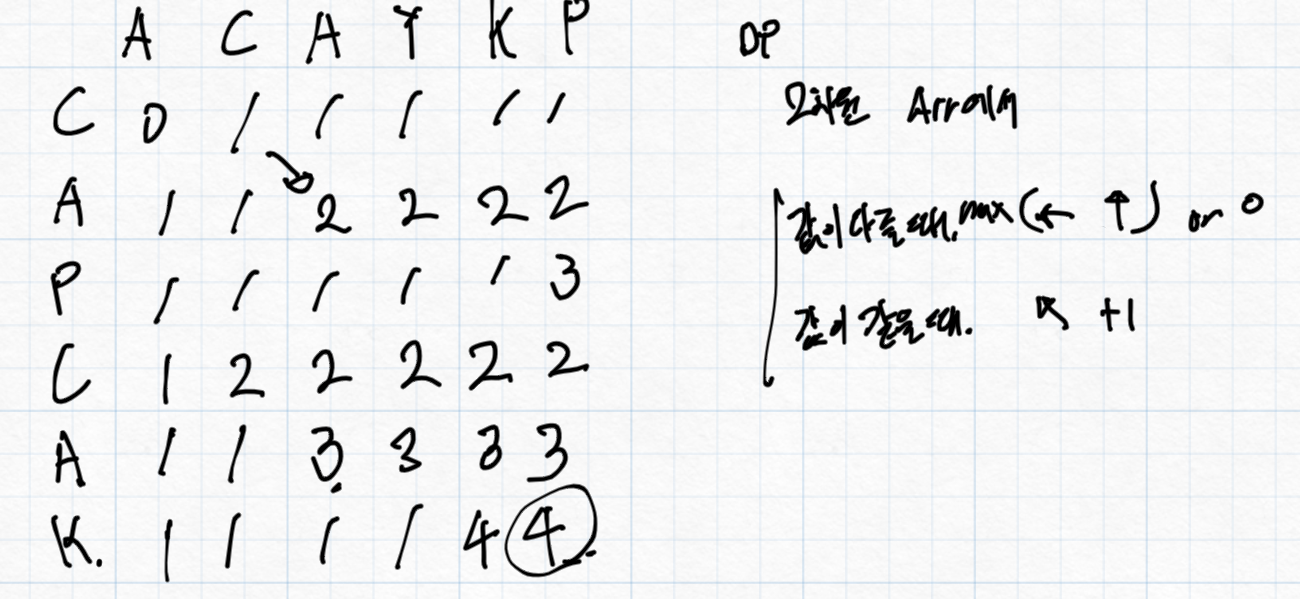 A C A Y K P
C 0 1 1 1 1 1
A 1 1 2 2 2 2
P 1 1 1 1 1 3
C 1 2 2 2 2 2
A 1 1 3 3 3 3
K. 1 1 1 1 4 4
DP
2차원 Arr에서
값이 다를 때. max(← ↑) or 0
값이 같을 때. ↖ +1